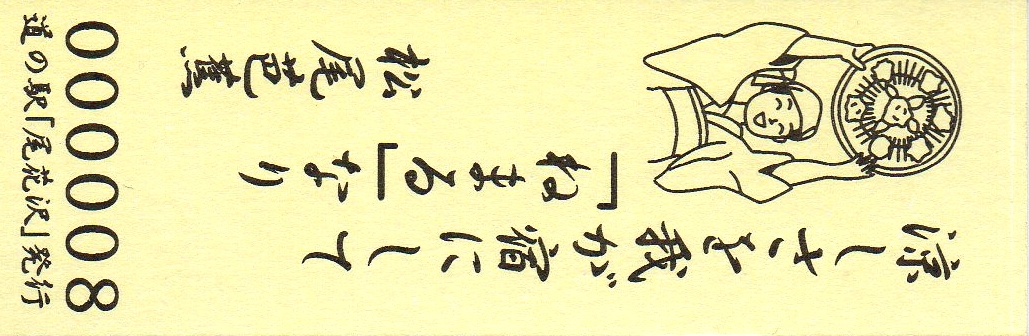 涼しさを我が宿にして
「ねまる」なり
松尾芭蕉
000008
道の駅「尾花沢」発行